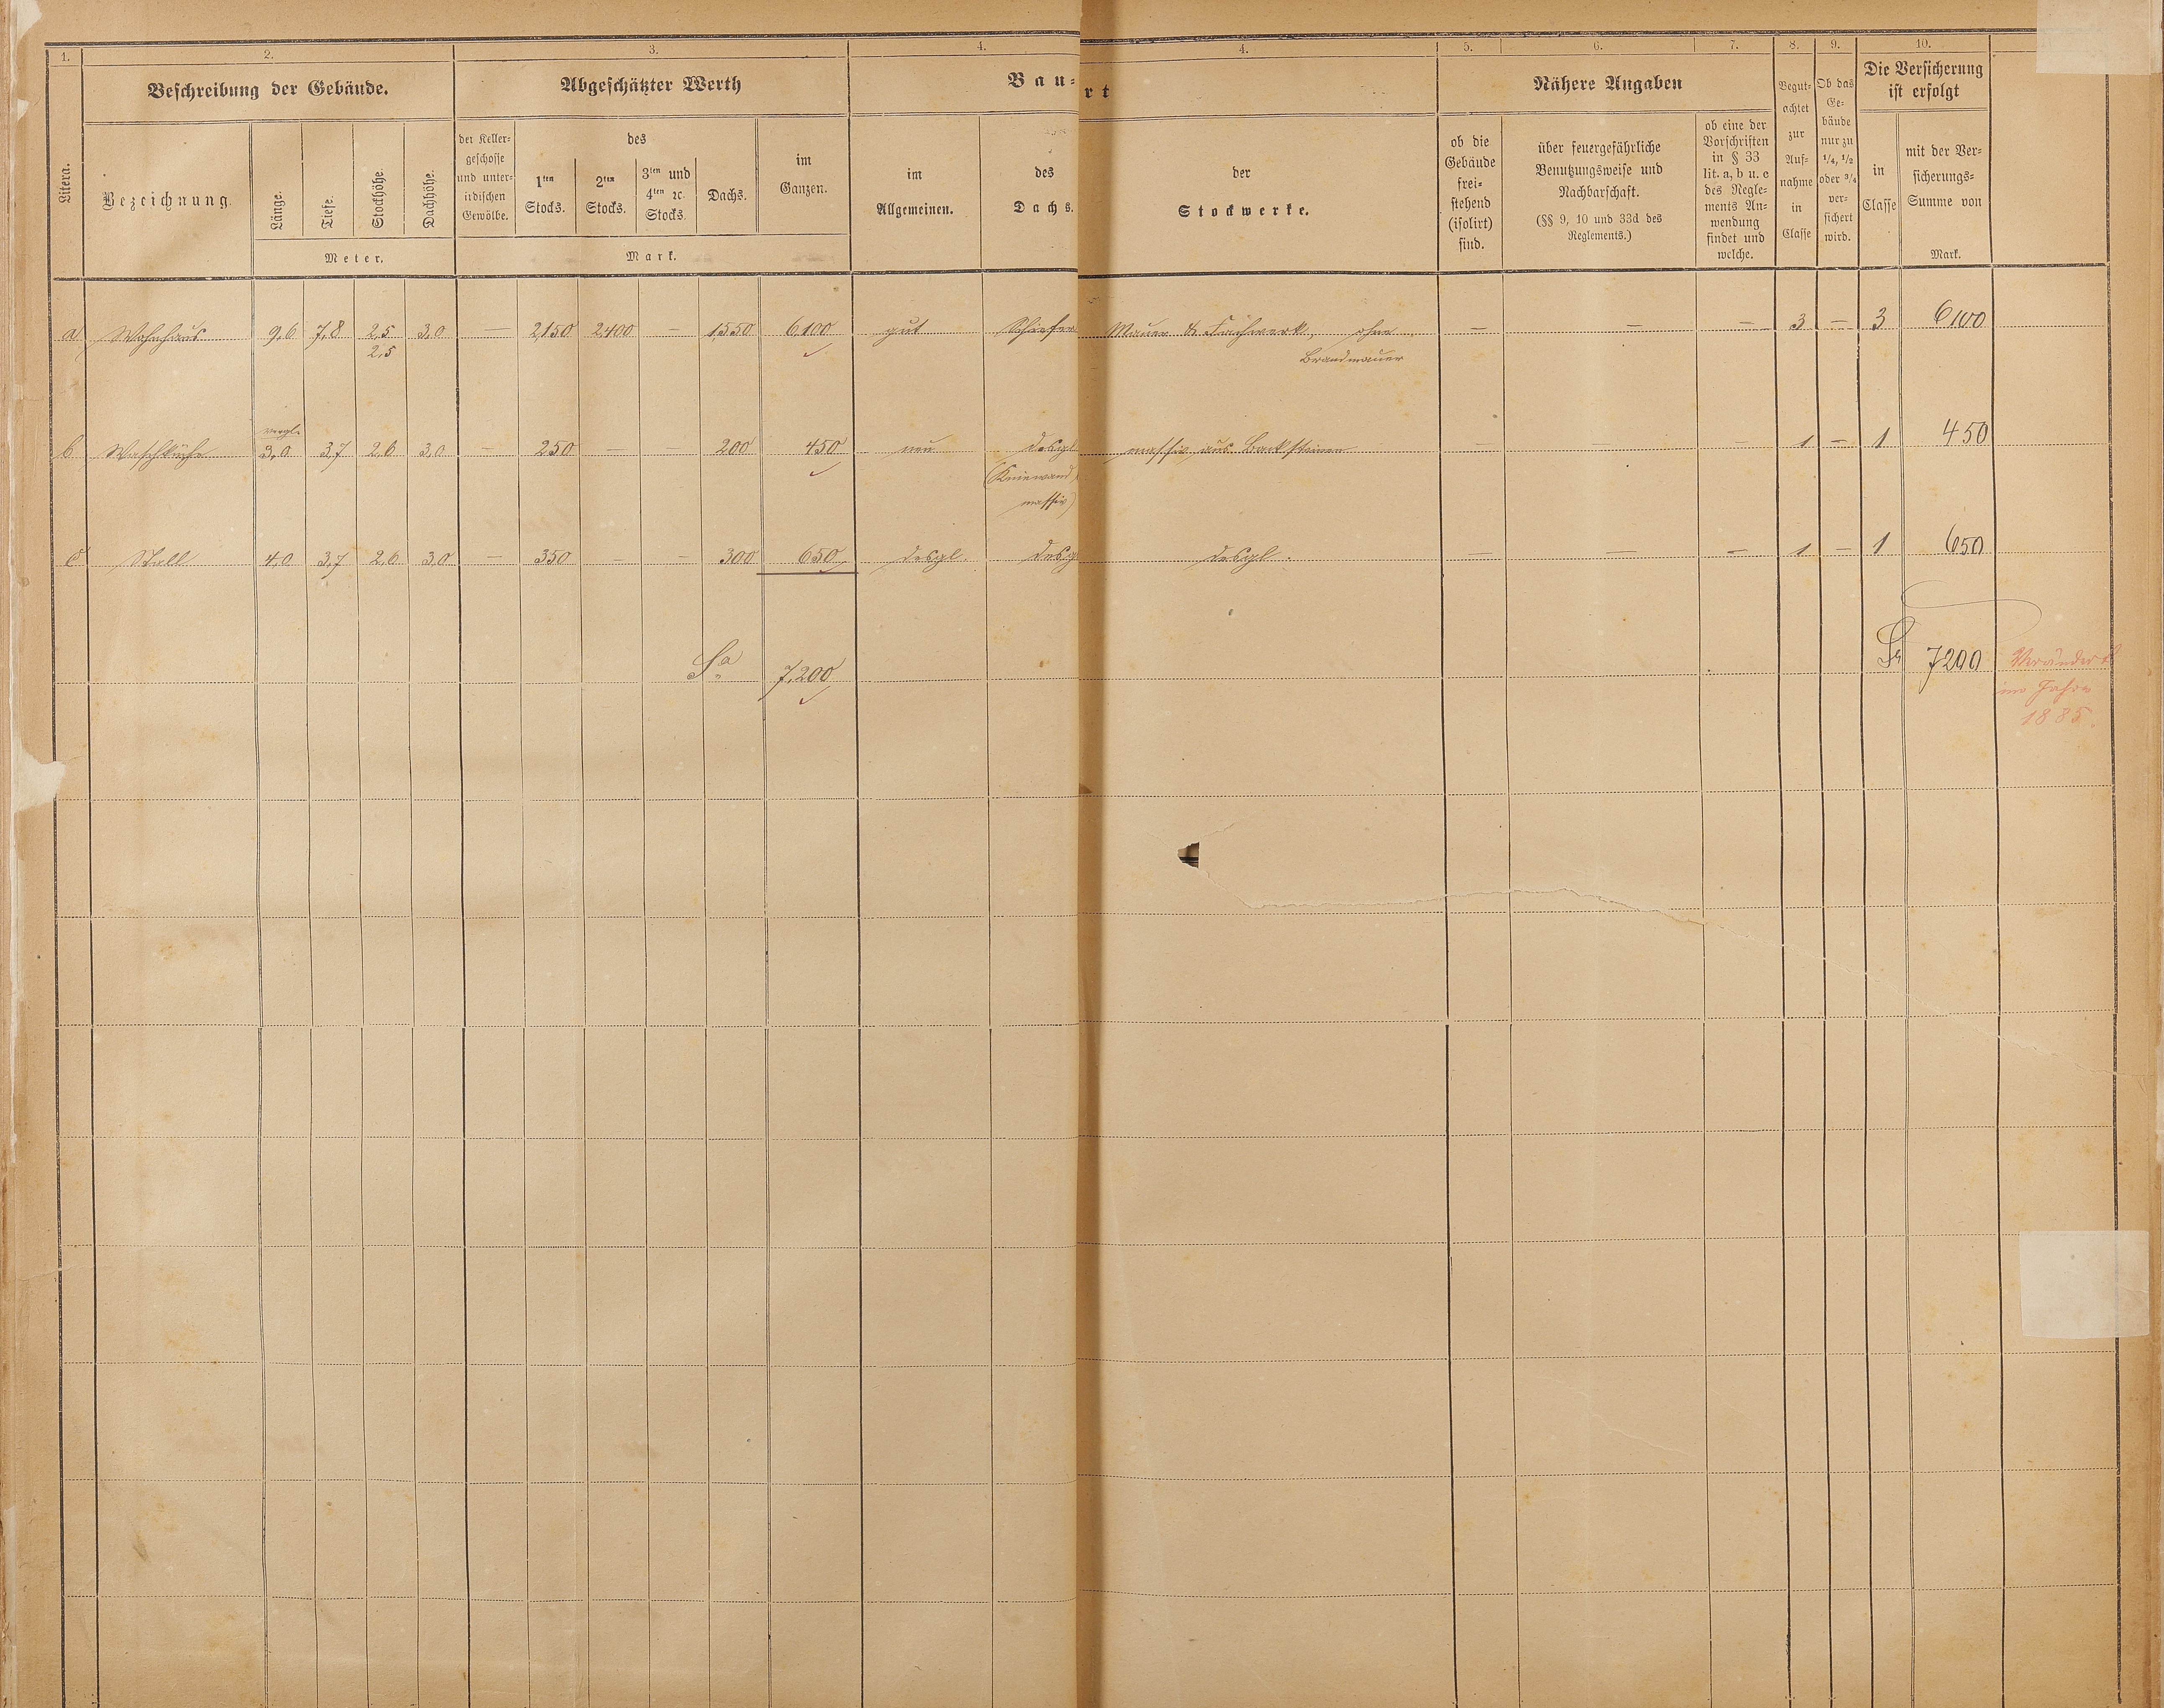 1. 2. 3. 4. 4. 5. 6. 7. 8. 9. 10.
Beschreibung der Gebäude. Abgeschätzter Werth Bau- rt Nähere Angaben
Litera.
Bezeichnung.
Länge.
Tiefe.
Stockhöhe.
Dachhöhe.
Meter.
der Keller-
geschosse
und unter-
irdischen
Gewölbe.
des
1ten
Stocks.
2ten
Stocks.
3ten und
4ten ꝛc.
Stocks.
Dachs.
im
Ganzen.
Mark.
im
Allgemeinen.
des
Dachs.
der
Stockwerke.
ob die
Gebäude
frei-
stehend
(isolirt)
sind.
über feuergefährliche
Benutzungsweise und
Nachbarschaft.
(§§ 9, 10 und 33d des
Reglements.)
ob eine der
Vorschriften
in § 33
lit. a, b u. c
des Regle-
ments An-
wendung
findet und
welche.
Begut-
achtet
zur
Auf-
nahme
in
Classe
Ob das
Ge-
bäude
nur zu
1/4, 1/2
oder 3/4
ver-
sichert
wird.
Die Versicherung
ist erfolgt
in
Classe
mit der Ver-
sicherungs-
Summe von
Mark.
a Wohnhaus 9,6 7,8 2,5 3,0 — 2150 2400 — 1550 6100 gut Schiefer Mauer & Fachwerk, ohne — — — 3 — 3 6100
2,5 Brandmauer
vergl.
b Waschküche 3,0 3,7 2,6 3,0 — 250 — — 200 450 neu desgl massiv aus Backsteinen — — — 1 — 1 450
(Kniewand
massiv)
c Stall 4,0 3,7 2,6 3,0 — 350 — — 300 650 desgl. desg desgl. — — — 1 — 1 650
Sa 7,200 7200 Verändert
im Jahre
1885.